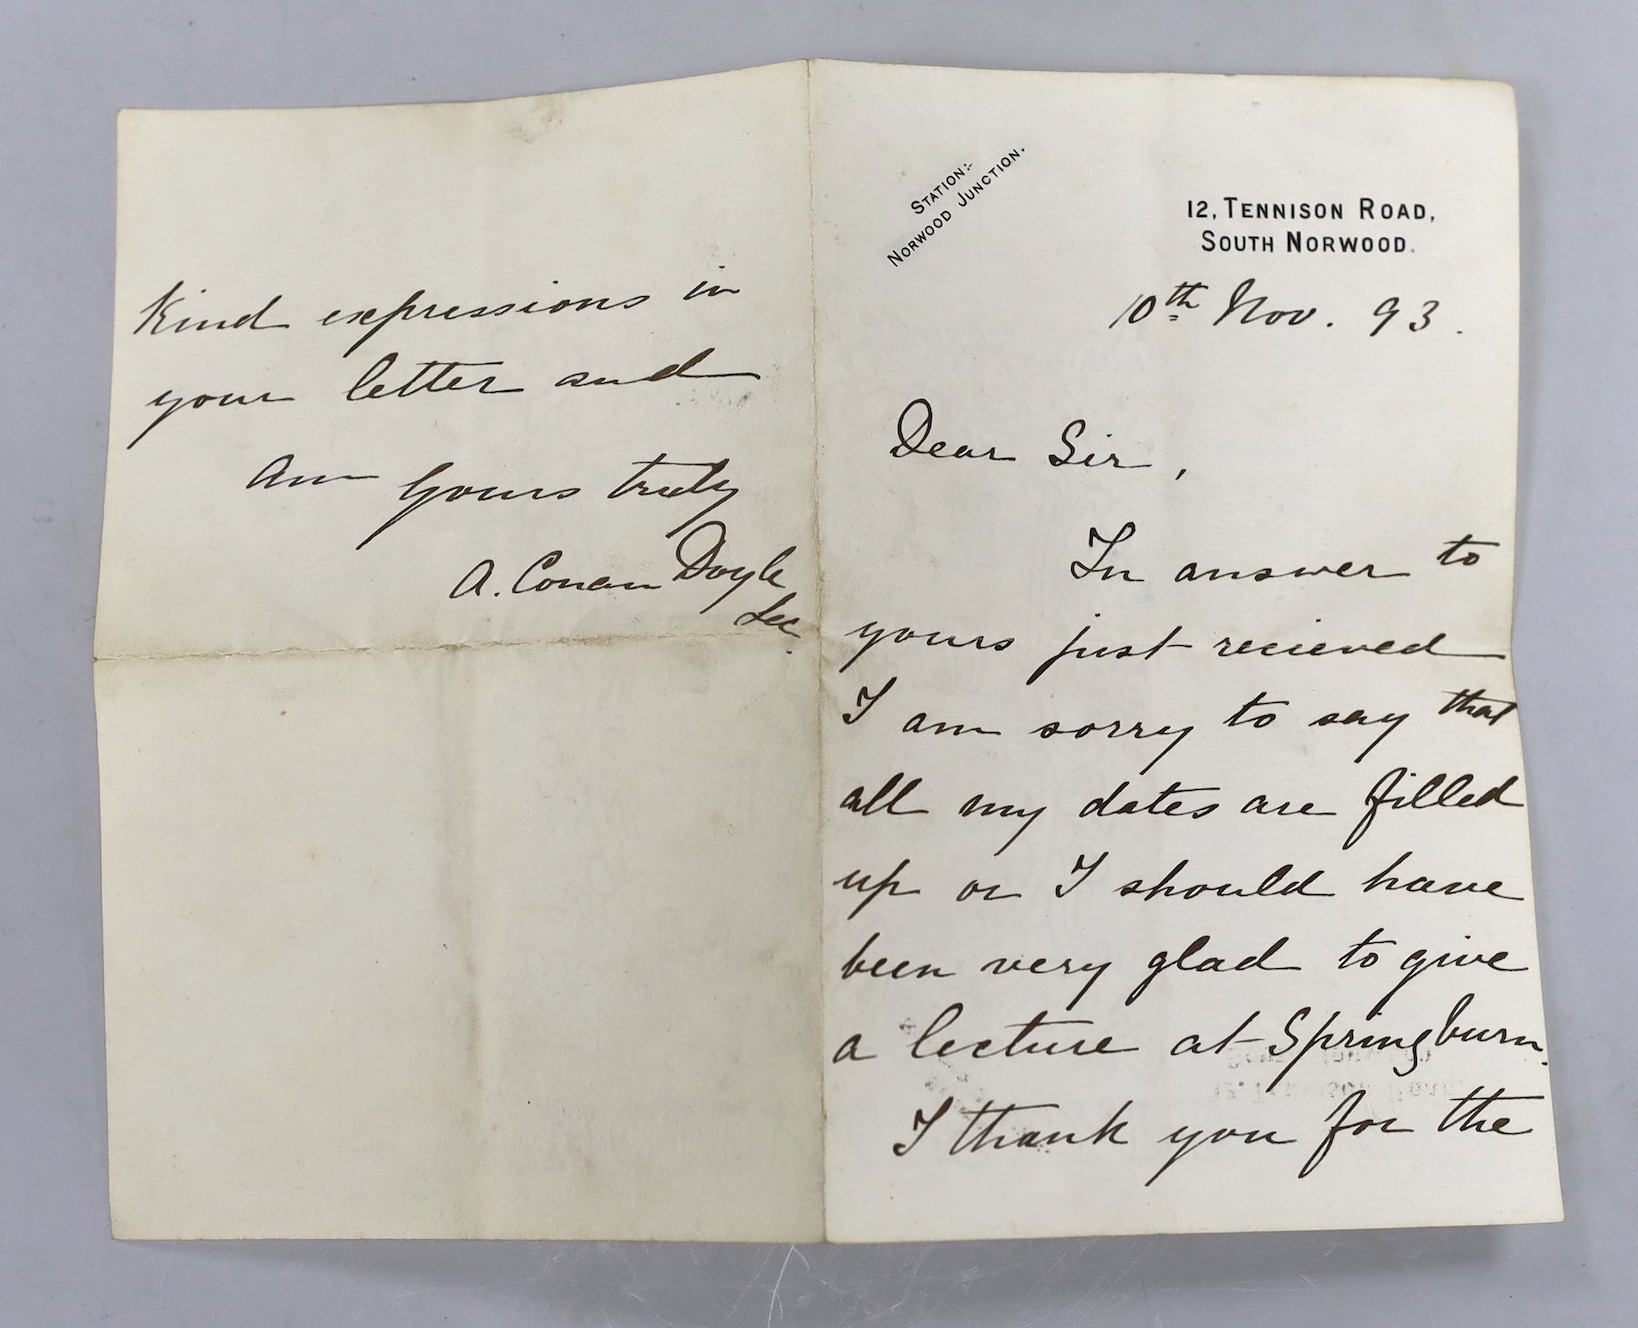 STATION:-
NORWOOD JUNCTION.
12, TENNISON ROAD,
SOUTH NORWOOD.
10th Nov. 93.
Dear Sir,
In answer to
yours just recieved
I am sorry to say that
all my dates are filled
up or I should have
been very glad to give
a lecture at Springburn.
I thank you for the
kind expressions in
your letter and
am yours truly
A. Conan Doyle
Sec.